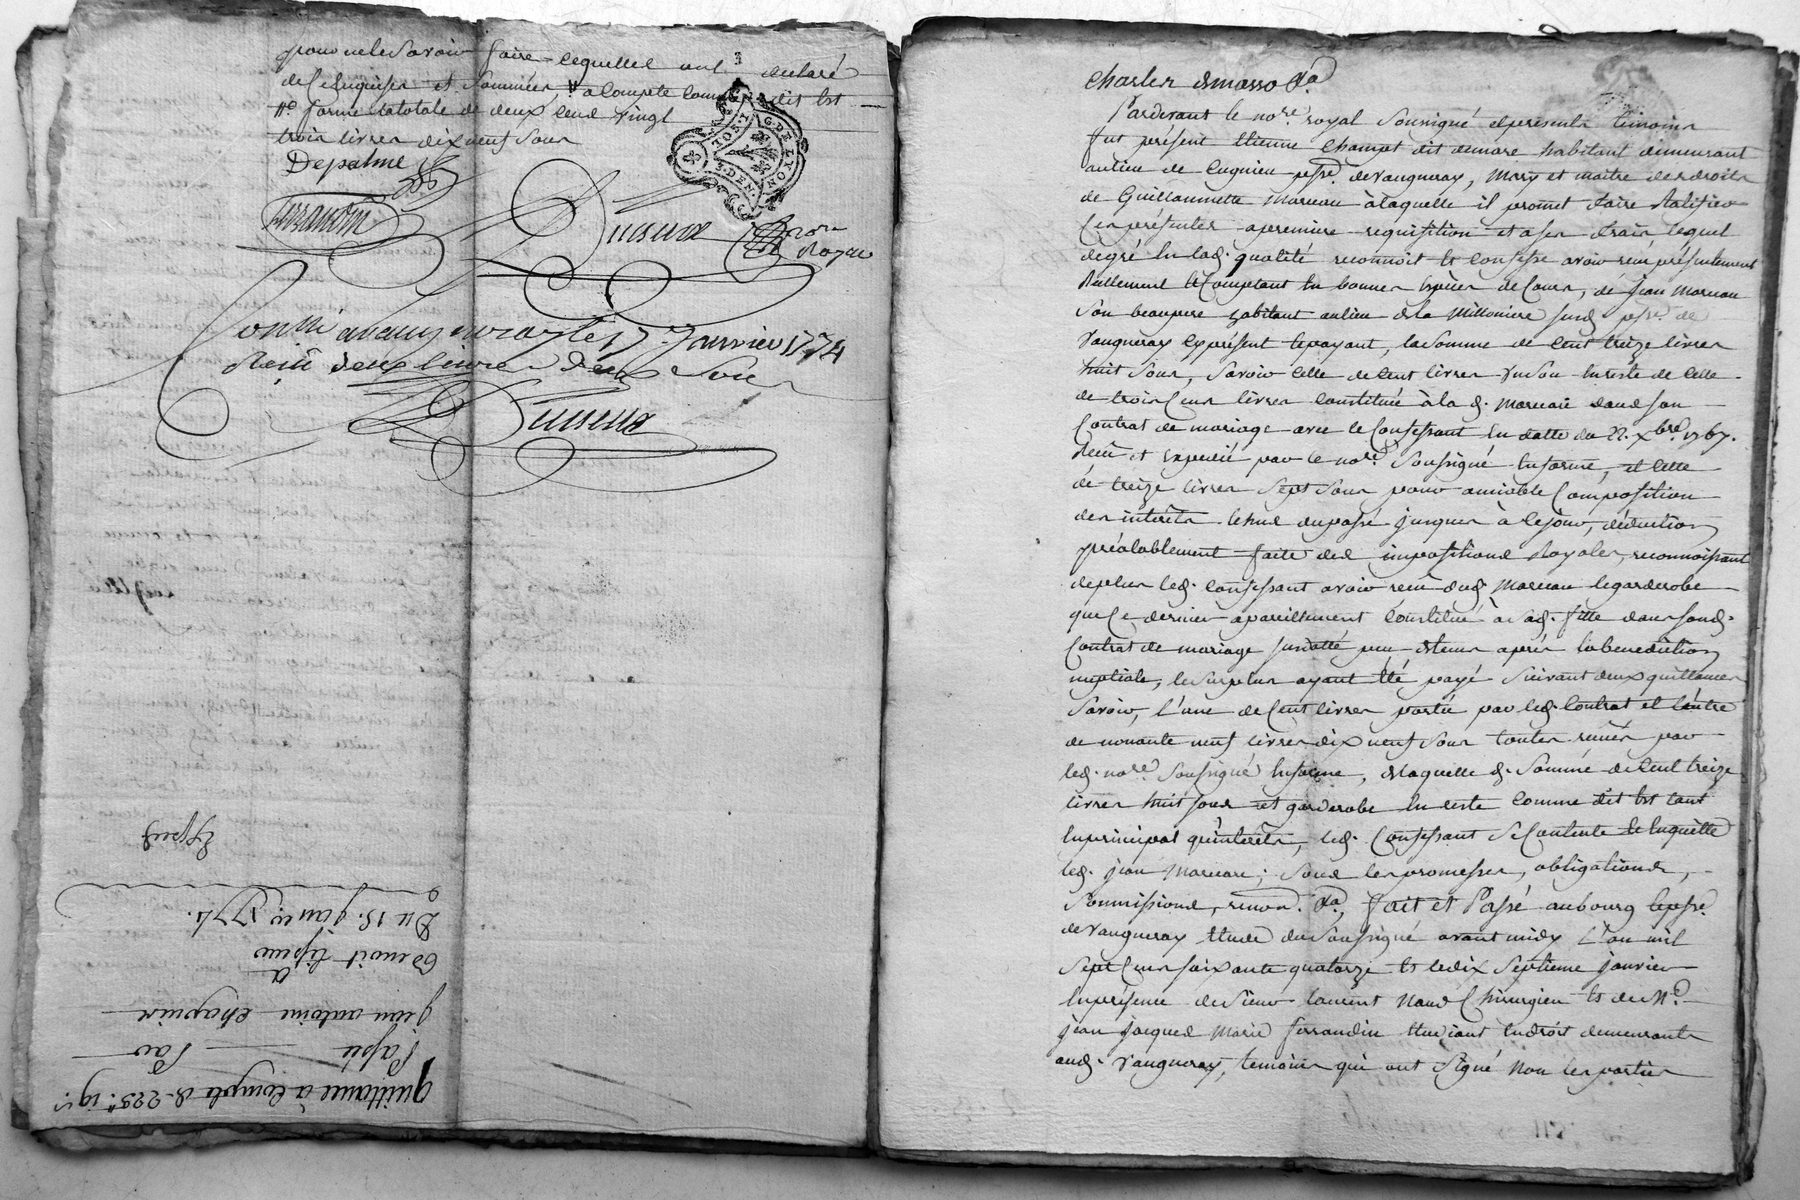 pour ne le savoir faire lequelles ont declaré
de ce enquises et sommées, à compte comme dit est
forme la totale de deux cend vingt
trois livres dix neuf sous
Depalme
ferrandin
Duseux nore
Royal
Conllé a vaugneray le 17 Janvier 1774
Reçu deux livres deux sous
Duseux
G. DE LYON
Expedf
Du 15. janvr. 1774.
Benoit tissieur
a
jean antoine chapuis
Passée par
quittance à compte de 223tt. 19s.
charles dmasso &a.
Pardevant le nore. royal soussigné et presents témoins
fut présent Etienne champt dit demare habitant demeurant
au lieu de Cugnieu psse. de vaugneray, mary et maitre des droits
de Guillaumette Mareau à laquelle il promet faire Ratifier
Ces présentes a premiere requisition et a ses frais lequel
de gré en lad. qualité reconnoit et confesse avoir reçu présentement
Réellement et Comptant en bonnes espèces de Cours, de jean Mareau
son beaupere habitant au lieu de la Milloniere susd. psse. de
vaugneray cy présent et payant, la somme de cent treize livres
huit sous, savoir celle de cent livres un sou en reste de celle
de trois Cens livres constituée à la d. Mareau dans son
Contrat de mariage avec le Confessant en datte du 22. xbre. 1767.
Reçu et expedié par le nore. soussigné en forme, et celle
de treize livres sept sous pour amiable Composition
des intérêts echus du passé jusques à ce jour, déduction
préalablement faite des impositions Royales, reconnoissant
de plus led. confessant avoir reçu dud. Mareau le garderobe
que Ce dernier a pareillement constitué à sad. fille dans sond.
Contrat de mariage susdatté peu de tems après la benediction
nuptiale, le surplus ayant été payé suivant deux quittances
savoir, l'une de Cent livres portée par led. Contrat et l'autre
de nonante neuf livres dix neuf sous toutes reçues par
led. nore. soussigné en forme, de laquelle d. somme de cent treize
livres huit sous et garderobe en reste comme dit est tant
en principal qu'intérêts, led. Confessant se Contente et en quitte
led. jean Mareau; sous les promesses, obligations,
soumissions, renon. &a, fait et Passé au bourg et psse.
de vaugneray étude du soussigné avant midy L'an mil
sept Cens soixante quatorze et le dix septieme janvier
en présence de sieur laurent Naud Chirurgien et de Me.
jean jacques Marie ferrandin étudiant en droit demeurants
aud. vaugneray, temoins qui ont signé non les parties